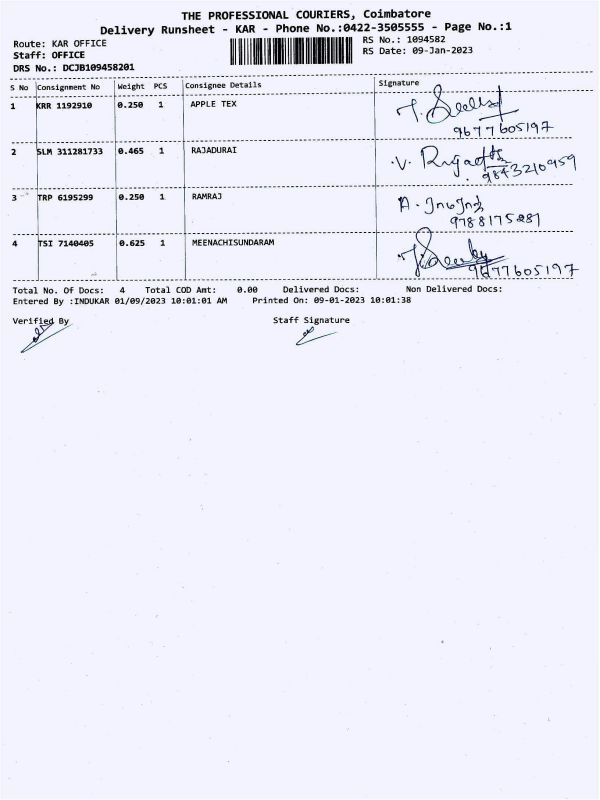 THE PROFESSIONAL COURIERS, Coimbatore
Delivery Runsheet - KAR - Phone No.:0422-3505555 - Page No.:1
Route: KAR OFFICE RS No.: 1094582
Staff: OFFICE RS Date: 09-Jan-2023
DRS No.: DCJB109458201
S No Consignment No Weight PCS Consignee Details Signature
1 KRR 1192910 0.250 1 APPLE TEX
9677605197
2 SLM 311281733 0.465 1 RAJADURAI V.
9843210959
3 TRP 6195299 0.250 1 RAMRAJ A.
9788175281
4 TSI 7140405 0.625 1 MEENACHISUNDARAM
9677605197
Total No. Of Docs: 4 Total COD Amt: 0.00 Delivered Docs: Non Delivered Docs:
Entered By :INDUKAR 01/09/2023 10:01:01 AM Printed On: 09-01-2023 10:01:38
Verified By Staff Signature